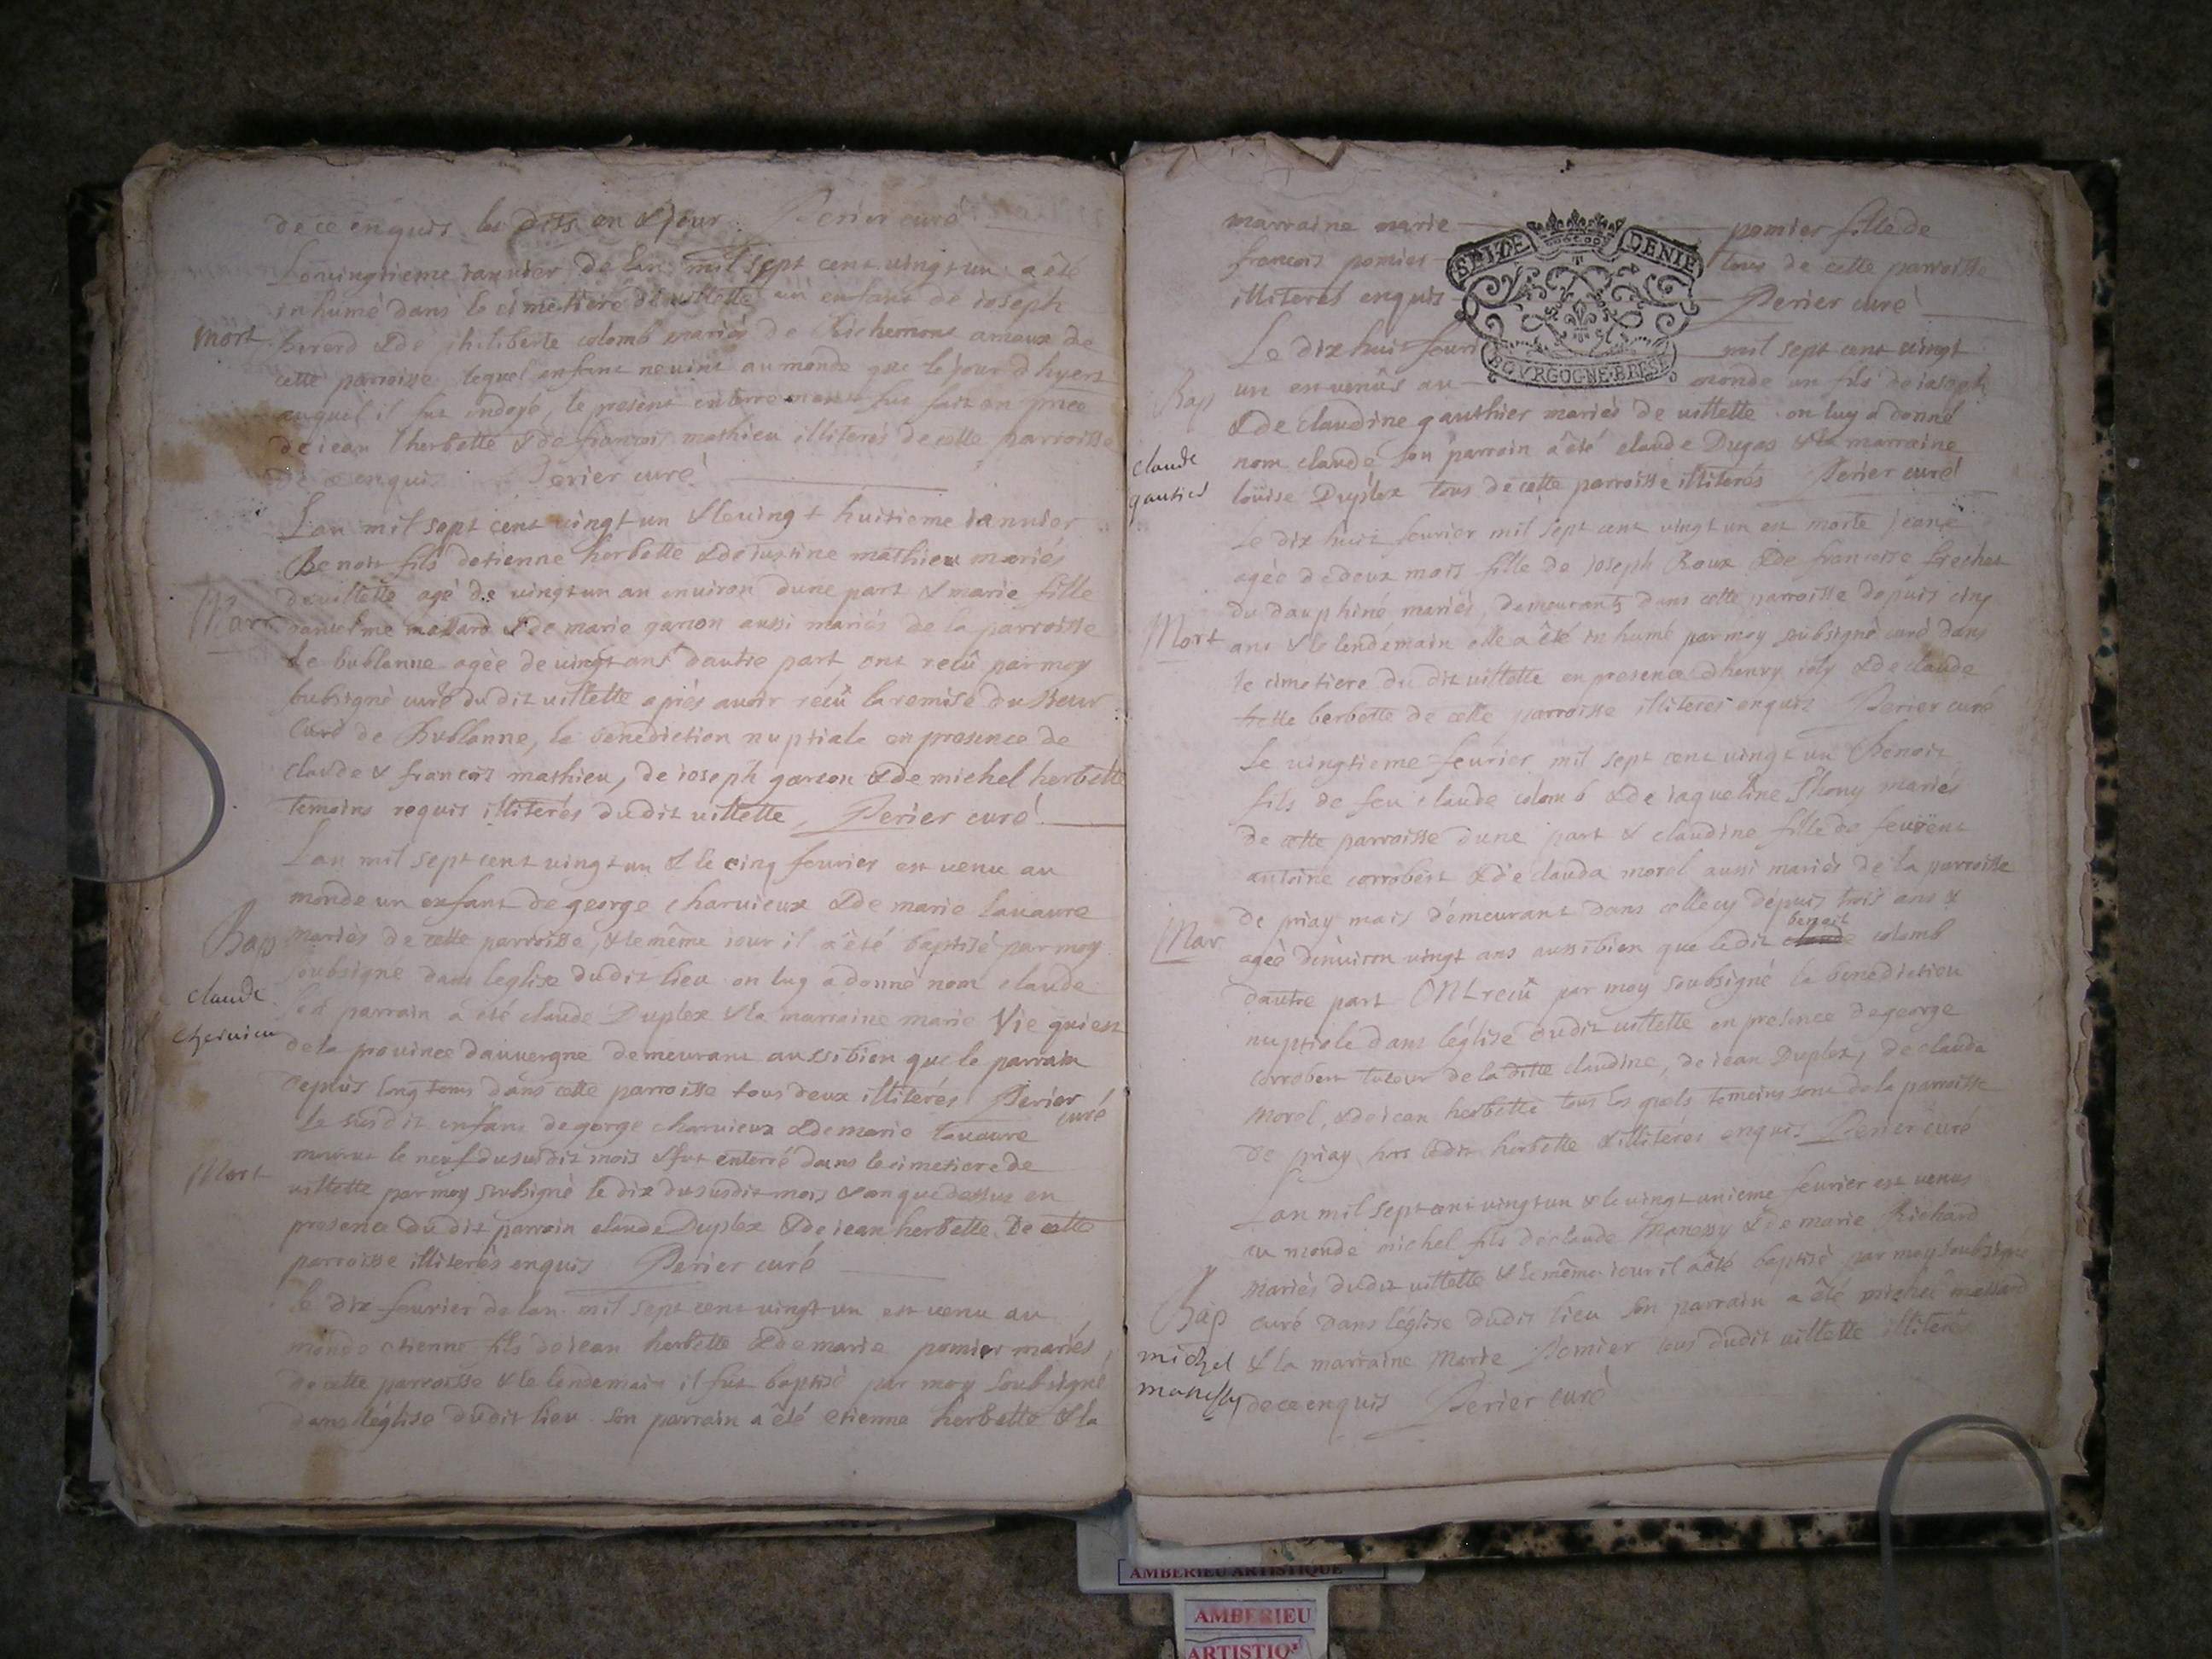 de ce enquis les dits an & jour Perier curé
Le vingtieme ianuier de lan mil sept cent vingt un a été
inhumé dans le cimetiere de uillette un enfant de ioseph
mort
berard & de philiberte colomb mariés de Richemont anneaux de
cette parroisse lequel enfant ne uint au monde que le jour dhyers
auquel il fut ondoyé, le present enterrement fut fait en pnce
de iean lherbette & de francois mathieu illiterés de cette parroisse
de ce enquis Perier curé
Lan mil sept cent vingt un & le uingt huitieme ianuier
Benoit fils detienne herbette & de iustine mathieu mariés
de uillette agé de uingt un an enuiron dune part & marie fille
Marr
danselme massard & de marie garson aussi mariés de la parroisse
de bublanne agèe de uingt ans dautre part ont recû par moy
subsigné curé du dit uillette aprés auoir recû la remise du sieur
curé de Bublanne, la benediction nuptiale en presence de
claude & francois mathieu, de ioseph garson & de michel herbette
temoins requis illiterés dudit uillette, Perier curé
Lan mil sept cent uingt un & le cinq feurier est venu au
monde un enfant de george charuieux & de marie lauaure
Bap
mariés de cette parroisse, & le même iour il a été baptisé par moy
soubsigne dans leglise dudit lieu on luy a donné nom claude
claude
cheruieu
son parrain a été claude Duplex & la marraine marie Vie qui est
de la prouince dauuergne demeurant aussi bien que le parrain
depuis long tems dans cette parroisse tous deux illiterés Perier
curé
Le susdit enfant de gorge charuieux & de marie lauaure
mourut le neuf du susdit mois & fut enterré dans le cimetiere de
Mort
uillette par moy subsigné le dix du susdit mois & an que dessus en
presence du dit parrain claude Duplex & de iean herbette de cette
parroisse illiterés enquis Perier curé
Le dix feurier de lan mil sept cent uingt un est venu au
monde etienne fils de iean herbette & de marie pomier mariés
de cette parroisse & le lendemain il fut baptisé par moy soubsigné
dans léglise dudit lieu son parrain a été etienne herbette & la
marraine marie pomier fille de
francois pomier tous de cette parroisse
illiterés enquis Perier curé
SEIZE DENIE
BOVRGOGNE·BRESE
Le dix huit feuri mil sept cent uingt
un est venûs au monde un fils de ioseph
Bap
& de claudine gauthier mariés de uillette on luy a donné
claude
gautier
nom claude son parrain a été claude Dugas & la marraine
loüise Duplex tous de cette parroisse illiterés Perier curé
Le dix huit feurier mil sept cent uingt un est morte jeane
agèe de deux mois fille de ioseph Roux & de francoise frechet
du dauphiné mariés, demeurants dans cette parroisse depuis cinq
Mort
ans & le lendemain elle a été inhumé par moy subsigné curé dans
le cimetiere du dit uillette en presence dhenry ioly & de claude
berbette de cette parroisse illiterés enquis Perier curé
Le uingtieme feurier mil sept cent uingt un Benoit
fils de feu claude colomb & de iaqueline Thony mariés
de cette parroisse dune part & claudine fille de feu
antoine corrobert & de clauda morel aussi mariés de la parroisse
de priay mais démeurant dans cellecy dépuis trois ans &
Mar
benoit
agèe dénuiron uingt ans aussi bien que ledit claude colomb
dautre part ONt recû par moy soubsigné la benediction
nuptiale dans léglise dudit uillette en presence de george
corrobert tuteur de la ditte claudine, de iean Duplex, de claude
morel, & de iean herbette tous les quels temoins sont de la parroisse
de priay hors ledit herbette & illiterés enquis Perier curé
Lan mil sept cent uingt un & le uingt unieme feurier est venus
au monde michel fils de claude Manessy & de marie Richard
mariés dudit uillette & le même iour il a été baptisé par moy soubsigné
Bap
curé dans léglise dudit lieu son parrain a été michel massard
michel
manessy
& la marraine Marie Pomier tous dudit uillette illiterés
de ce enquis Perier curé
AMBERIEU ARTISTIQUE
AMBERIEU
ARTISTIQ